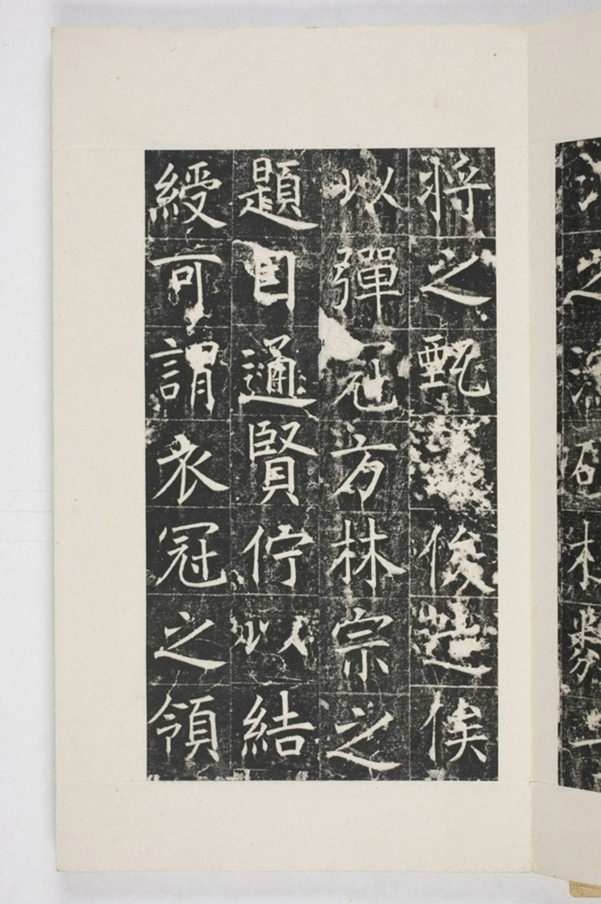 将之甄俊造俟
以彈冠方林宗之
題目通賢佇以結
綬可謂衣冠之領